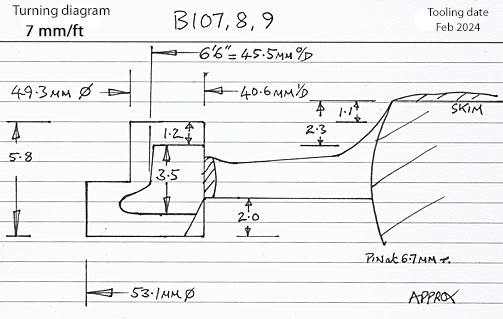 Turning diagram
7 mm/ft
B107, 8, 9
Tooling date
Feb 2024
6'6" = 45.5MM O/D
49.3MM Ø
40.6MM I/D
1.1
SKIM
2.3
1.2
5.8
3.5
2.0
PIN at 6.7MM r.
53.1MM Ø
APPROX